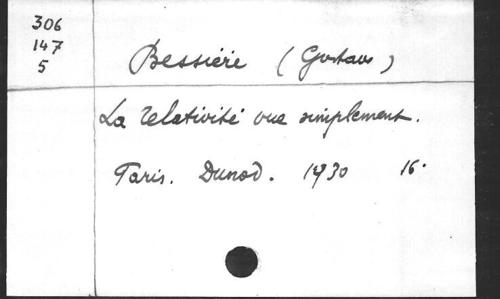 306
147
5
Bessière (Gustave)
La relativité vue simplement.
Paris. Dunod. 1930 16°